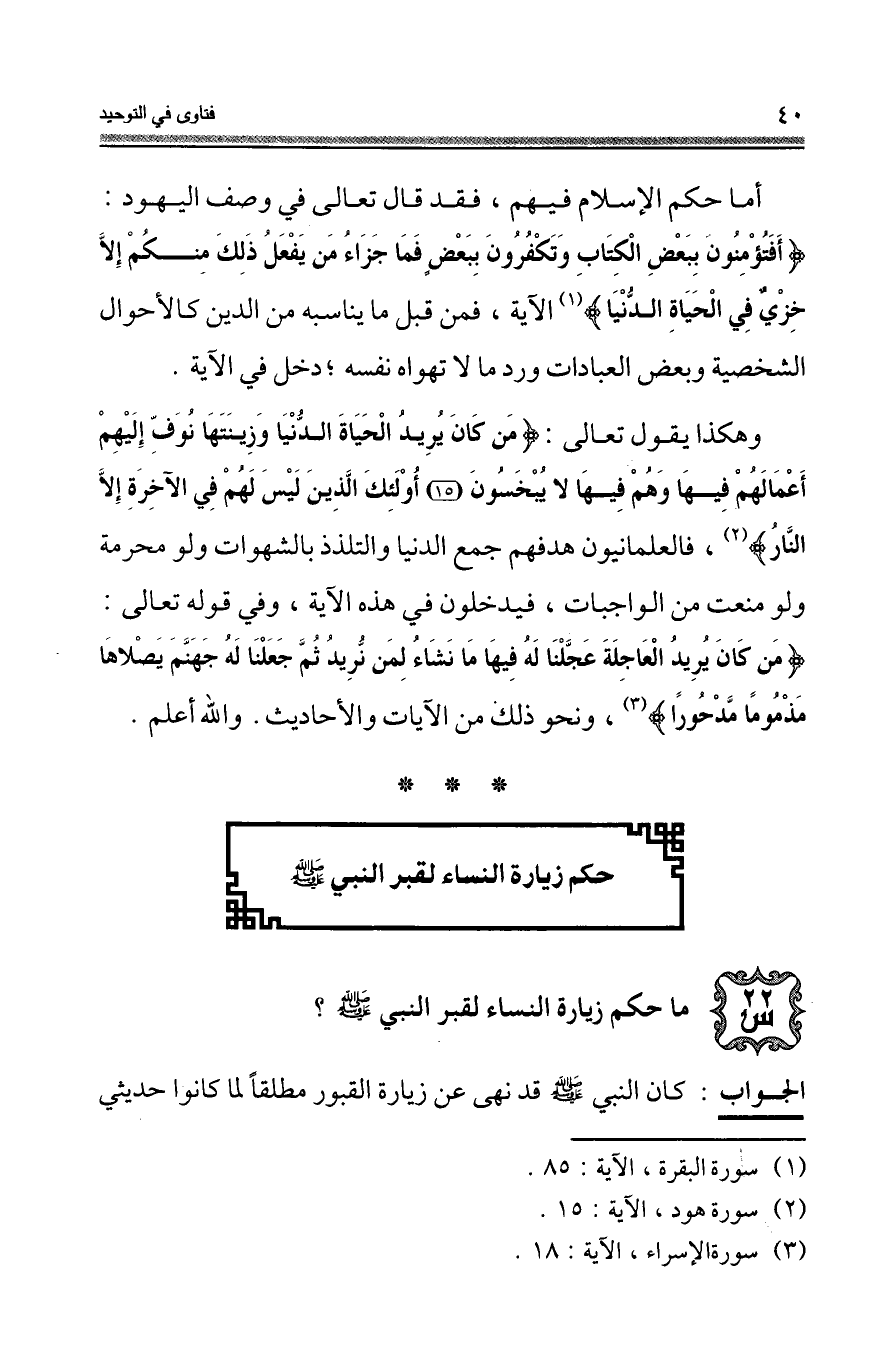 ٤٠
فتاوى في التوحيد
أما حكم الإسلام فيهم ، فقد قال تعالى في وصف اليهود :
﴿ أَفَتُؤْمِنُونَ بِبَعْضِ الْكِتَابِ وَتَكْفُرُونَ بِبَعْضٍ فَمَا جَزَاءُ مَن يَفْعَلُ ذَلِكَ مِنكُمْ إِلاَّ
خِزْيٌ فِي الْحَيَاةِ الدُّنْيَا ﴾(١) الآية ، فمن قبل ما يناسبه من الدين كالأحوال
الشخصية وبعض العبادات ورد ما لا تهواه نفسه ؛ دخل في الآية .
وهكذا يقول تعالى : ﴿ مَن كَانَ يُرِيدُ الْحَيَاةَ الدُّنْيَا وَزِينَتَهَا نُوَفِّ إِلَيْهِمْ
أَعْمَالَهُمْ فِيهَا وَهُمْ فِيهَا لا يُبْخَسُونَ (١٥) أُوْلَئِكَ الَّذِينَ لَيْسَ لَهُمْ فِي الآخِرَةِ إِلاَّ
النَّارُ ﴾(٢) ، فالعلمانيون هدفهم جمع الدنيا والتلذذ بالشهوات ولو محرمة
ولو منعت من الواجبات ، فيدخلون في هذه الآية ، وفي قوله تعالى :
﴿ مَن كَانَ يُرِيدُ الْعَاجِلَةَ عَجَّلْنَا لَهُ فِيهَا مَا نَشَاءُ لِمَن نُّرِيدُ ثُمَّ جَعَلْنَا لَهُ جَهَنَّمَ يَصْلاهَا
مَذْمُومًا مَّدْحُورًا ﴾(٣) ، ونحو ذلك من الآيات والأحاديث . والله أعلم .
* * *
حكم زيارة النساء لقبر النبي ﷺ
س ٢٢ ما حكم زيارة النساء لقبر النبي ﷺ ؟
الجواب : كان النبي ﷺ قد نهى عن زيارة القبور مطلقاً لما كانوا حديثي
(١) سورة البقرة ، الآية : ٨٥ .
(٢) سورة هود ، الآية : ١٥ .
(٣) سورة الإسراء ، الآية : ١٨ .